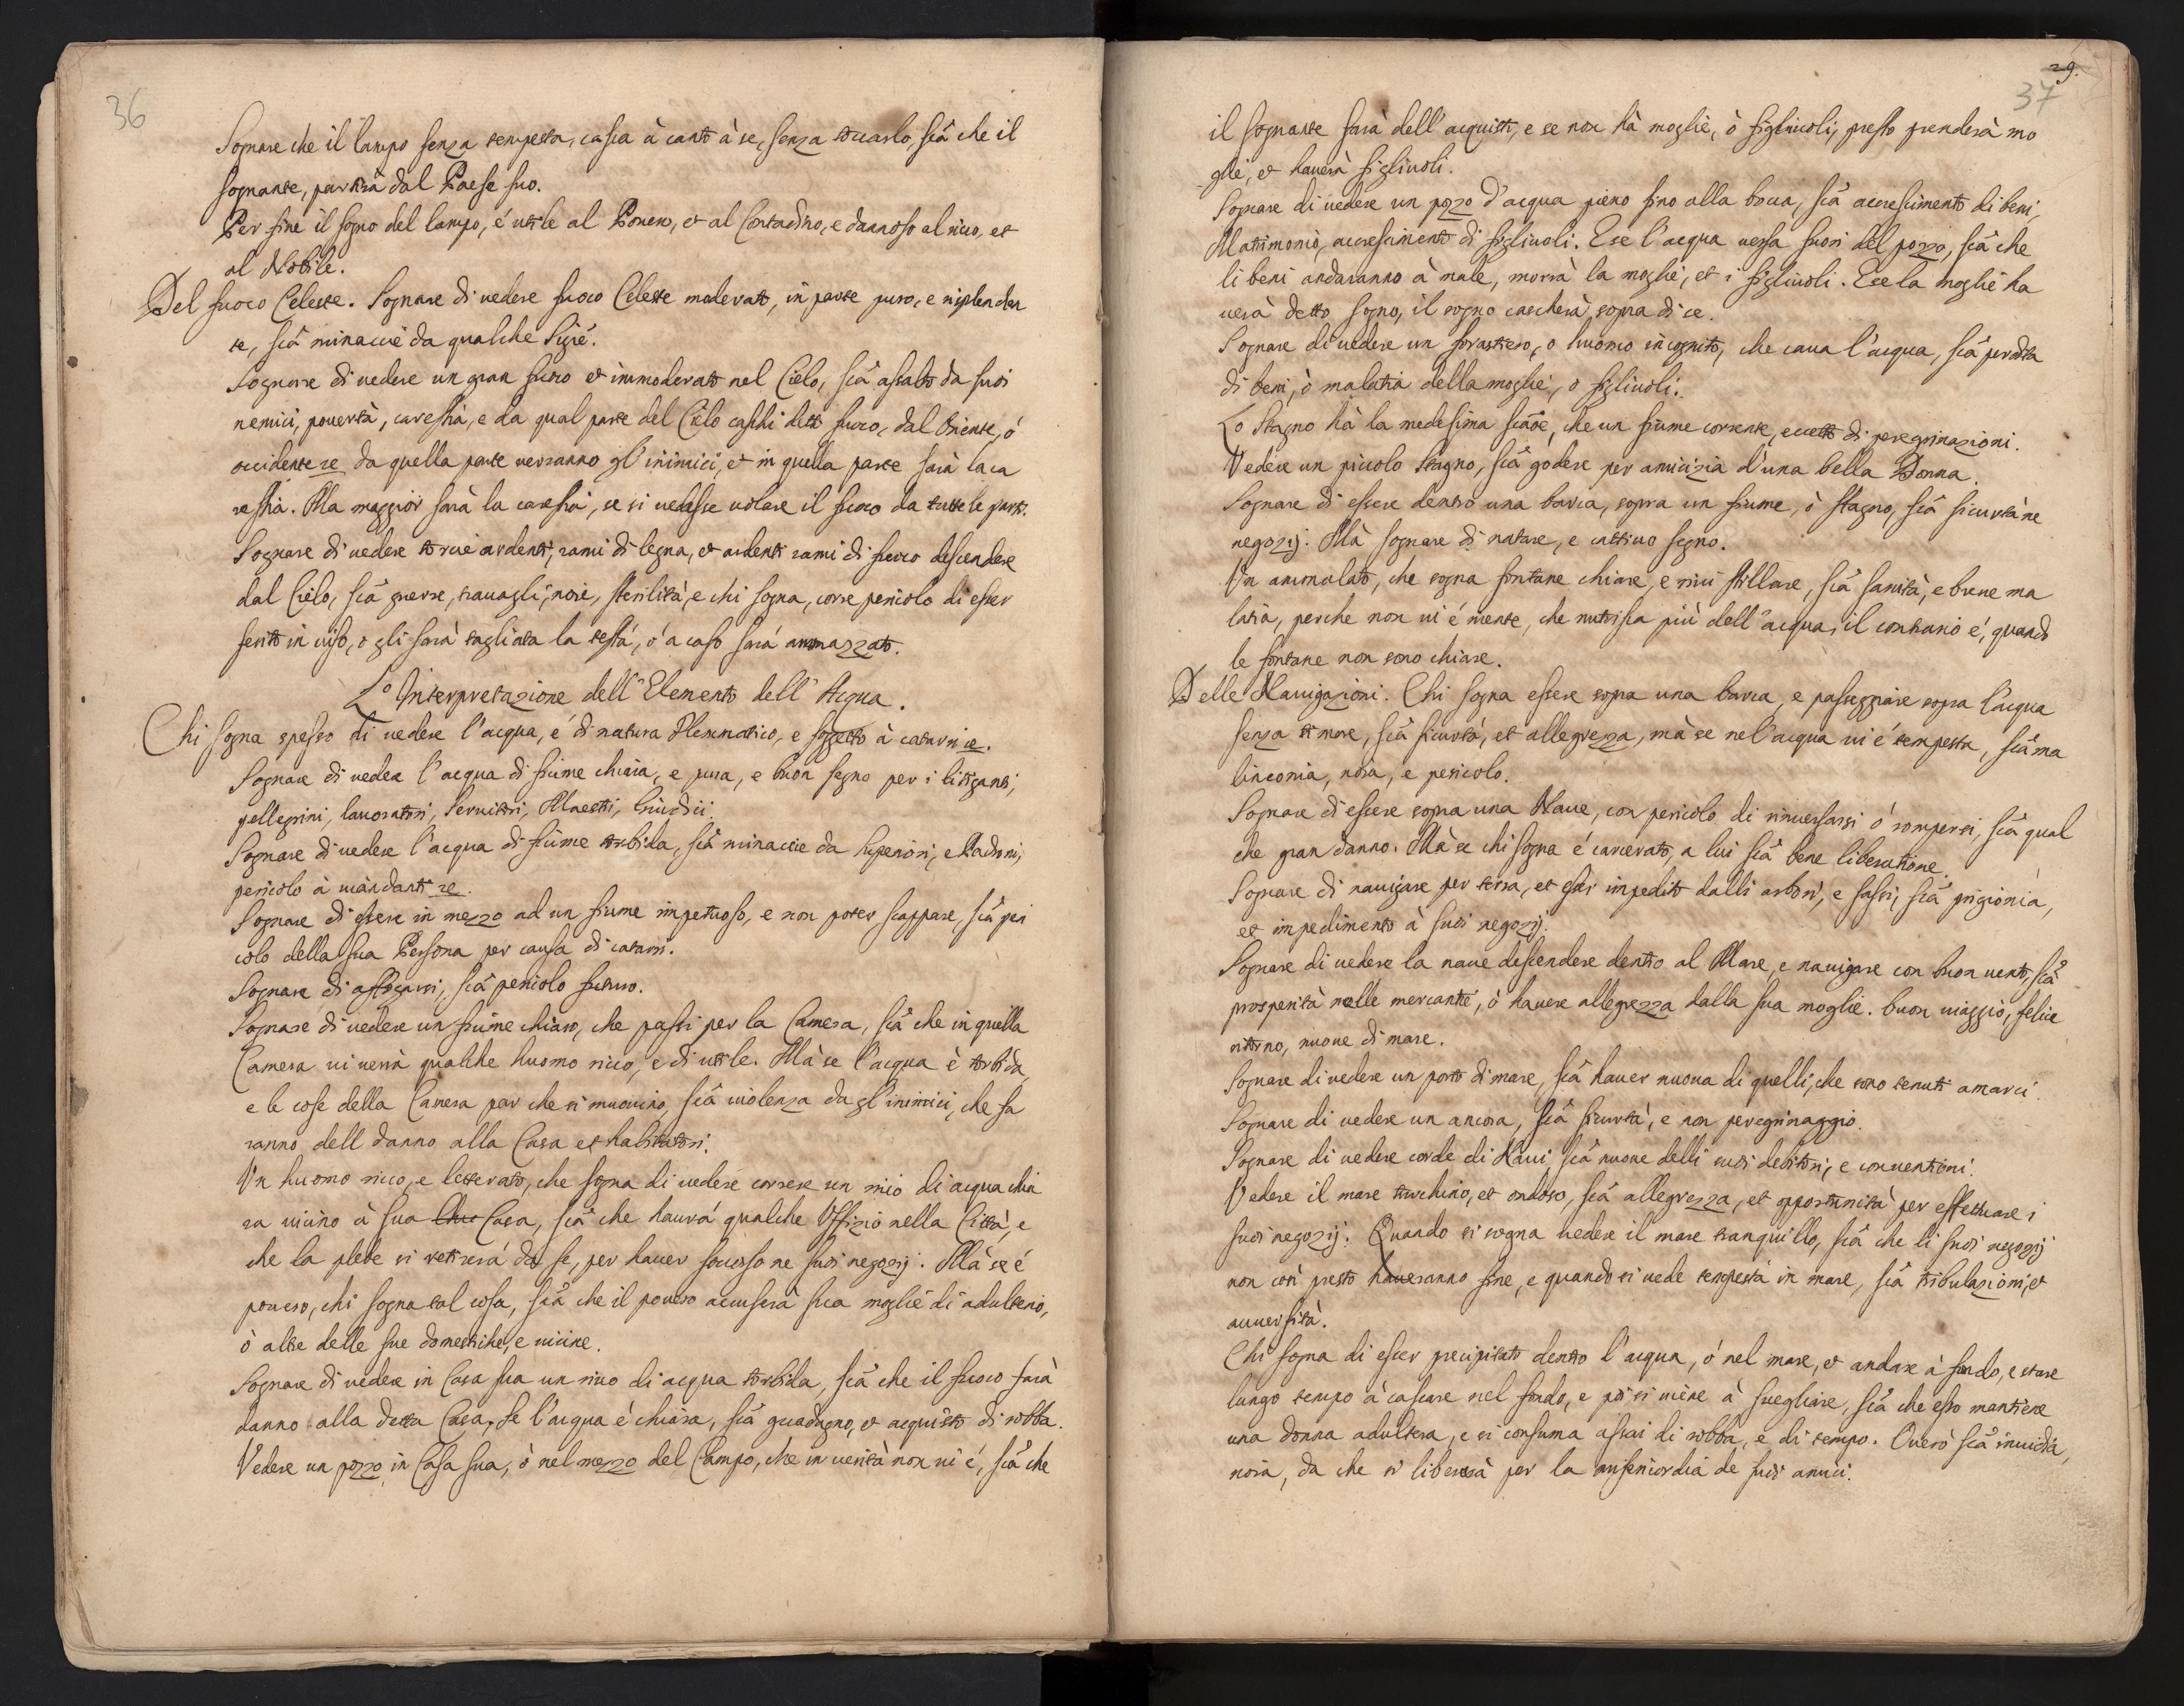 36
Sognare che il lampo senza tempesta, casca à canto à se, senza toccarlo, sciã che il
sognante, partirà dal Paese suo.
Per fine il sogno del lampo, é utile al Povero, et al Contadino, e dannoso al ricco, et
al Nobile.
Del fuoco Celeste. Sognare di vedere fuoco Celeste moderato, in parte puro, e risplenden
te, sciã minaccie da qualche Sigre.
Sognare di vedere un gran fuoco et immoderato nel Cielo, sciã assalto da suoi
nemici, povertà, carestia, e da qual parte del Cielo caschi detto fuoco, dal Oriente, ó
occidente re da quella parte verranno gl'inimici, et in quella parte sarà la ca
restia. Ma maggior sarà la carestia, se si vedesse volare il fuoco da tutte le parti.
Sognare di vedere torcie ardenti, rami di legna, et ardenti rami di fuoco descendere
dal Cielo, sciã guerre, travagli, noie, sterilità, e chi sogna, corre pericolo di esser
ferito in viso, o gli sarà tagliata la testa, ó a caso sará ammazzato.
Lo Interpretazione dell'Elemento dell'Acqua.
Chi sogna spesso di vedere l'acqua, é di natura Flemmatico, e soggetto à catarri re.
Sognare di vedere l'acqua di fiume chiara, e pura, e buon segno per i litiganti,
pellegrini, lavoratori, servitori, Maestri, Giudici.
Sognare di vedere l'acqua di fiume torbida, sciã minaccie da superiori, e Padroni,
pericolo à viandanti re.
Sognare di essere in mezzo ad un fiume impetuoso, e non poter scappare, sciã peri
colo della sua Persona per causa di catarri.
Sognare di affogarsi, sciã pericolo futuro.
Sognare di vedere un fiume chiaro, che passi per la Camera, sciã che in quella
Camera vi verrà qualche huomo ricco, e di utile. Mà se l'acqua è torbida,
e le cose della Camera par che si muovino, sciã violenza da gl'inimici, che fa
ranno dell danno alla Casa et habitatori.
Un huomo ricco, e letterato, che sogna di vedere correre un rivo di acqua chia
ra vicino à sua Casa, sciã che haurá qualche Uffizio nella Città, e
che la plebe si ritirerá da se, per haver soccorso ne suoi negozij. Mà se é
povero, chi sogna tal cosa, sciã che il povero accuserà sua moglie di adulterio,
ò altre delle sue domestiche, e vicine.
Sognare di vedere in Casa sua un rivo di acqua torbida, sciã che il fuoco farà
danno alla detta Casa, Se l'acqua é chiara, sciã guadagno, et acquisto di robba.
Vedere un pozzo in Casa sua, ò nel mezzo del Campo, che in verità non vi é, sciã che
29.
37
il sognante farà dell'acquisti, e se non hà moglie, ò figliuoli, presto prenderà mo
glie, et haverà figliuoli.
Sognare di vedere un pozzo d'acqua pieno fino alla bocca, sciã accrescimento di beni,
Matrimonio, accrescimento di figliuoli. E se l'acqua versa fuori del pozzo, sciã che
li beni andaranno à male, morrà la moglie, et i figliuoli. E se la moglie ha
verà detto sogno, il sogno cascherà sopra di se.
Sognare di vedere un forastiero, o huomo incognito, che cava l'acqua, sciã perdita
di beni, ò malatia della moglie, o figliuoli.
Lo Stagno hà la medesima sciãoe, che un fiume corrente, eccetto di peregrinazioni.
Vedere un piccolo stagno, sciã godere per amicizia d'una bella Donna.
Sognare di essere dentro una barca, sopra un fiume, ò stagno, sciã sicurtà ne
negozij. Mà sognare di natare, e cattivo segno.
Un ammalato, che sogna fontane chiare, e rivi stillare, sciã sanità, e breve ma
latia, perche non vi é niente, che nutrisca più dell'acqua, il contrario é, quando
le fontane non sono chiare.
Delle Navigazioni. Chi sogna essere sopra una barca, e passeggiare sopra l'acqua
senza timore, sciã sicurtà, et allegrezza, mà se nel'acqua vi é tempesta, sciã ma
linconia, noia, e pericolo.
Sognare di essere sopra una Nave, con pericolo di rinversarsi ó rompersi, sciã qual
che gran danno. Mà se chi sogna é carcerato, a lui sciã bene liberatione.
Sognare di navigare per terra, et esser impedito dalli arbori, e sassi, sciã prigionia,
et impedimento à suoi negozij.
Sognare di vedere la nave descendere dentro al Mare, e navigare con buon vento, sciã
prosperità nelle mercantie, ò havere allegrezza dalla sua moglie. buon viaggio, felice
ritorno, nuove di mare.
Sognare di vedere un porto di mare, sciã haver nuova di quelli, che sono tenuti amarci.
Sognare di vedere un ancora, sciã sicurtà, e non peregrinaggio.
Sognare di vedere corde di Navi, sciã nuove delli suoi debitori, e conventioni.
Vedere il mare turchino, et ondoso, sciã allegrezza, et opportunità per effettuare i
suoi negozij. Quando si sogna vedere il mare tranquillo, sciã che li suoi negozij
non così presto haveranno fine, e quando si vede tempesta in mare, sciã tribulazioni, et
avversità.
Chi sogna di esser precipitato dentro l'acqua, ó nel mare, et andare à fondo, e stare
lungo tempo à cascare nel fondo, e poi si viene à svegliare, sciã che esso mantiene
una donna adultera, e si consuma assai di robba, e di tempo. Overo sciã invidia,
noia, da che si libererà per la misericordia de suoi amici.